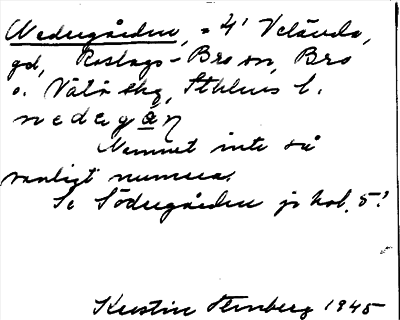 Nedergården, = 4' Velända,
gd, Roslags-Bro sn, Bro
o. Vätö skg, Sthlms l.
nedegán
Namnet inte så
vanligt numera.
Se Södergården jo kol. 5!
Kerstin Stenberg 1945